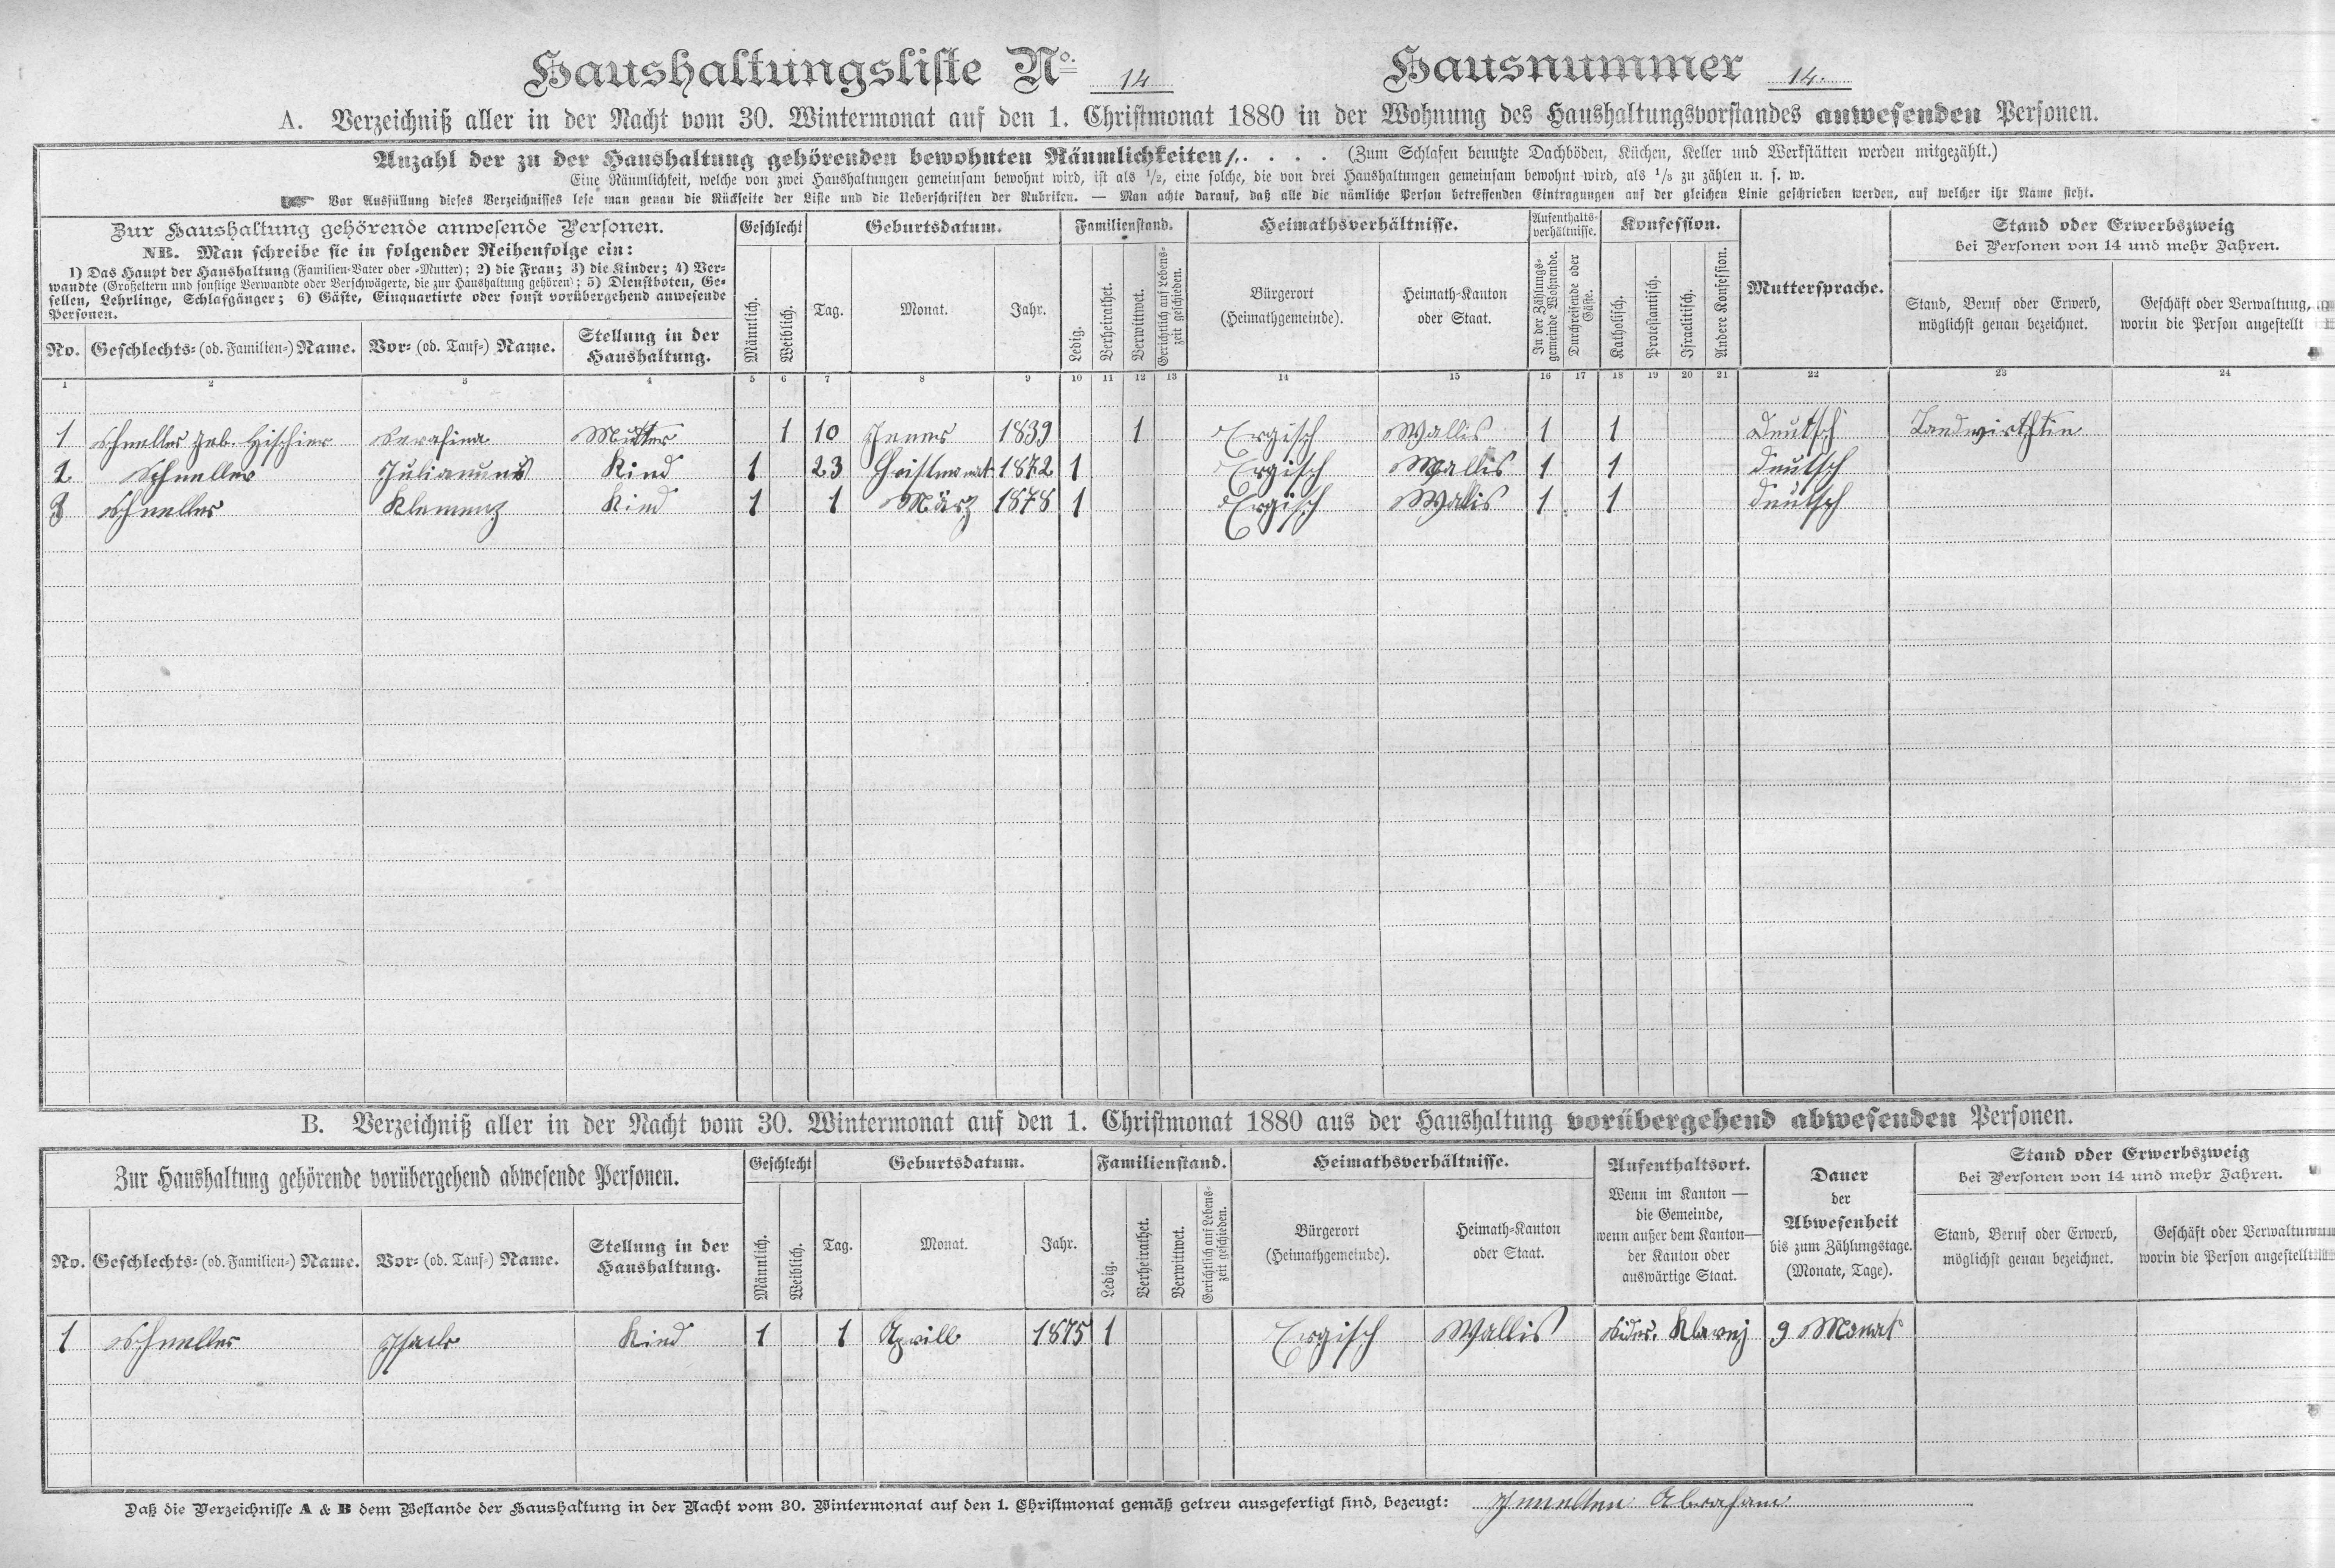 Haushaltungsliste No. 14 Hausnummer 14.
A. Verzeichniß aller in der Nacht vom 30. Wintermonat auf den 1. Christmonat 1880 in der Wohnung des Haushaltungsvorstandes anwesenden Personen.
Anzahl der zu der Haushaltung gehörenden bewohnten Räumlichkeiten 1. . . . . (Zum Schlafen benutzte Dachböden, Küchen, Keller und Werkstätten werden mitgezählt.)
Eine Räumlichkeit, welche von zwei Haushaltungen gemeinsam bewohnt wird, ist als 1/2, eine solche, die von drei Haushaltungen gemeinsam bewohnt wird, als 1/3 zu zählen u. s. w.
Vor Ausfüllung dieses Verzeichnisses lese man genau die Rückseite der Liste und die Ueberschriften der Rubriken. — Man achte darauf, daß alle die nämliche Person betreffenden Eintragungen auf der gleichen Linie geschrieben werden, auf welcher ihr Name steht.
Zur Haushaltung gehörende anwesende Personen.
NB. Man schreibe sie in folgender Reihenfolge ein:
1) Das Haupt der Haushaltung (Familien-Vater oder -Mutter); 2) die Frau; 3) die Kinder; 4) Ver-
wandte (Großeltern und sonstige Verwandte oder Verschwägerte, die zur Haushaltung gehören); 5) Dienstboten, Ge-
sellen, Lehrlinge, Schlafgänger; 6) Gäste, Einquartirte oder sonst vorübergehend anwesende
Personen.
No. Geschlechts- (od. Familien-) Name. Vor- (od. Tauf-) Name. Stellung in der
Haushaltung.
Geschlecht
Männlich. Weiblich.
Geburtsdatum.
Tag. Monat. Jahr.
Familienstand.
Ledig. Verheirathet. Verwittwet. Gerichtlich auf Lebens-
zeit geschieden.
Heimathsverhältnisse.
Bürgerort
(Heimathgemeinde).
Heimath-Kanton
oder Staat.
Aufenthalts-
verhältnisse.
In der Zählungs-
gemeinde Wohnende.
Durchreisende oder
Gäste.
Konfession.
Katholisch. Protestantisch. Israelitisch. Andere Konfession.
Muttersprache.
Stand oder Erwerbszweig
bei Personen von 14 und mehr Jahren.
Stand, Beruf oder Erwerb,
möglichst genau bezeichnet.
Geschäft oder Verwaltung,
worin die Person angestellt
1 2 3 4 5 6 7 8 9 10 11 12 13 14 15 16 17 18 19 20 21 22 23 24
1 Schneller geb. Hischier Serafina Mutter 1 10 Jener 1839 1 Ergisch Wallis 1 1 Deutsch Landwirthin
2 Schneller Julianus Kind 1 23 Christmonat 1872 1 Ergisch Wallis 1 1 deutsch
3 Schneller Klemenz Kind 1 1 März 1878 1 Ergisch Wallis 1 1 deutsch
B. Verzeichniß aller in der Nacht vom 30. Wintermonat auf den 1. Christmonat 1880 aus der Haushaltung vorübergehend abwesenden Personen.
Zur Haushaltung gehörende vorübergehend abwesende Personen.
No. Geschlechts- (od. Familien-) Name. Vor- (od. Tauf-) Name. Stellung in der
Haushaltung.
Geschlecht
Männlich. Weiblich.
Geburtsdatum.
Tag. Monat. Jahr.
Familienstand.
Ledig. Verheirathet. Verwittwet. Gerichtlich auf Lebens-
zeit geschieden.
Heimathsverhältnisse.
Bürgerort
(Heimathgemeinde).
Heimath-Kanton
oder Staat.
Aufenthaltsort.
Wenn im Kanton —
die Gemeinde,
wenn außer dem Kanton—
der Kanton oder
auswärtige Staat.
Dauer
der
Abwesenheit
bis zum Zählungstage.
(Monate, Tage).
Stand oder Erwerbszweig
bei Personen von 14 und mehr Jahren.
Stand, Beruf oder Erwerb,
möglichst genau bezeichnet.
Geschäft oder Verwaltung
worin die Person angestellt
1 Schneller Kind 1 1 Aprill 1875 1 Ergisch Wallis 9 Monat
Daß die Verzeichnisse A & B dem Bestande der Haushaltung in der Nacht vom 30. Wintermonat auf den 1. Christmonat gemäß getreu ausgefertigt sind, bezeugt: Abraham